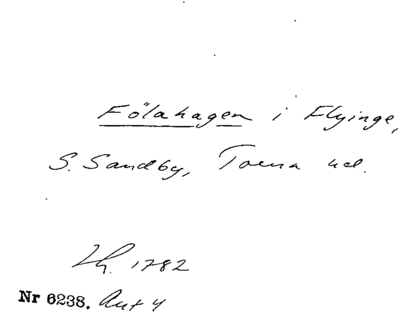 Fölahagen i Flyinge,
S. Sandby, Torna hd.
1782
Nr 6238. Aut 4